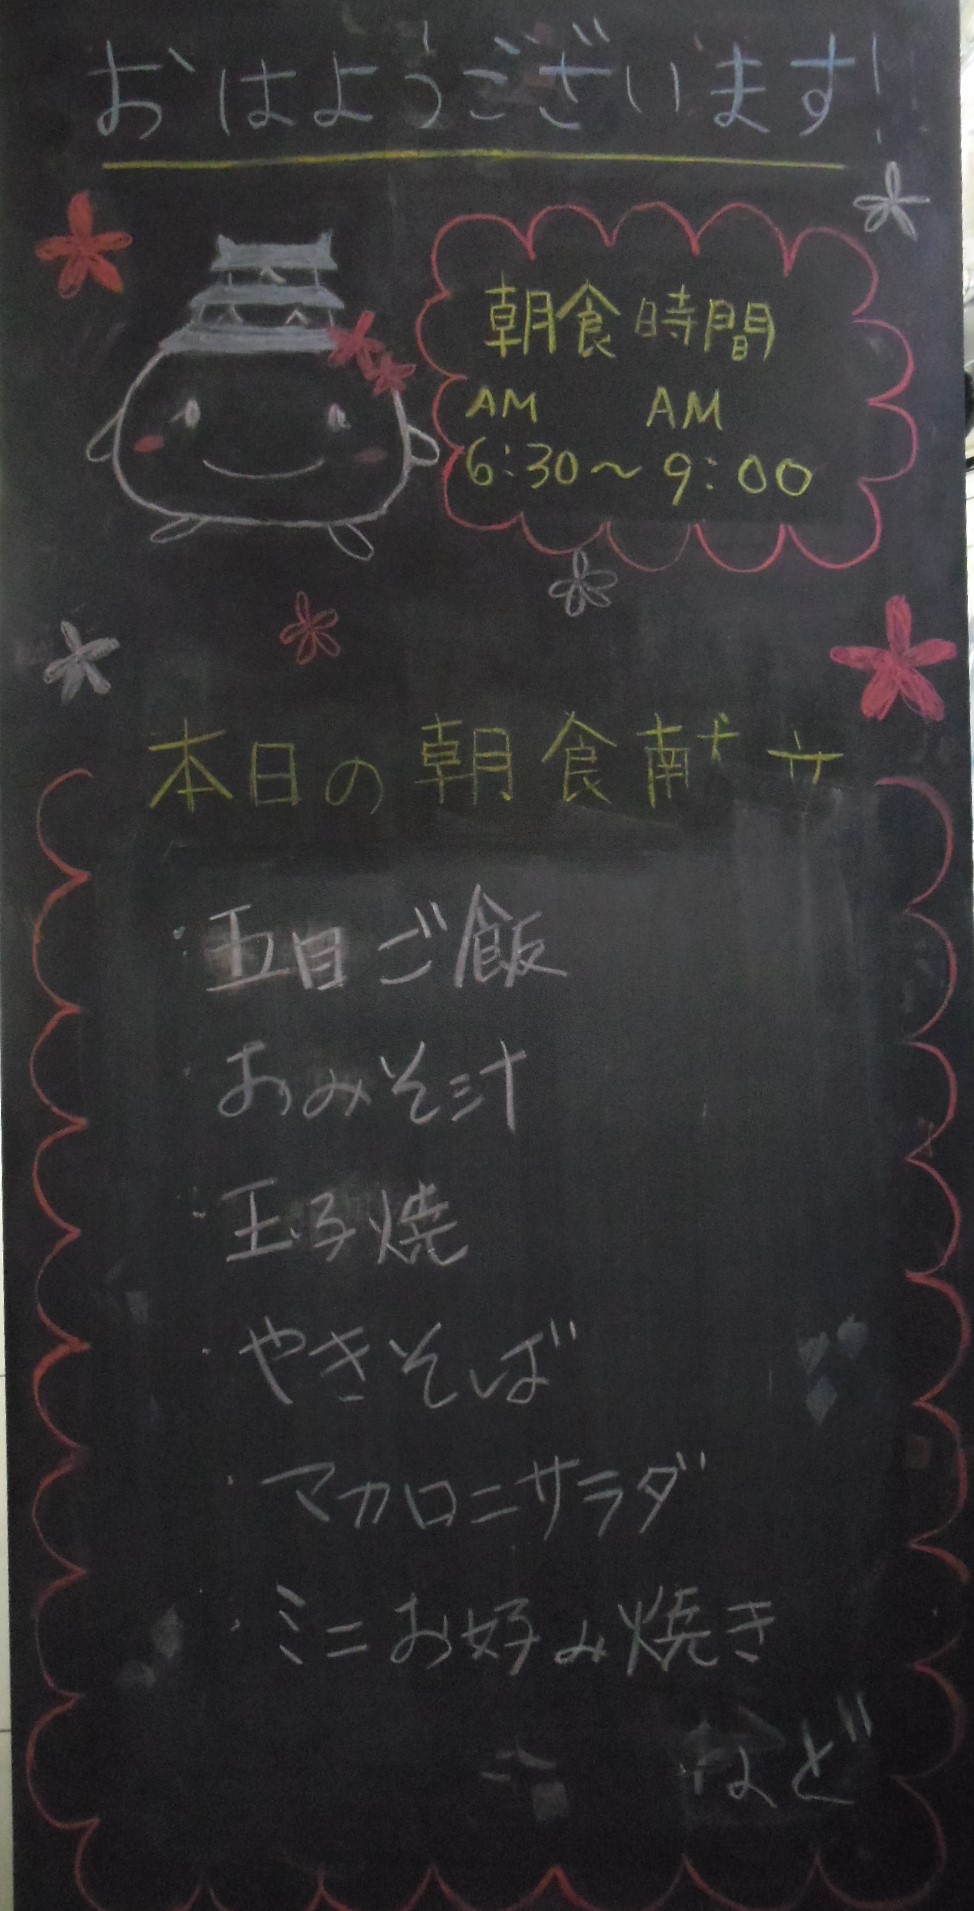 おはようございます!
朝食時間
AM AM
6:30〜9:00
本日の朝食献立
・五目ご飯
・おみそ汁
・玉子焼
・やきそば
・マカロニサラダ
・ミニお好み焼き
など